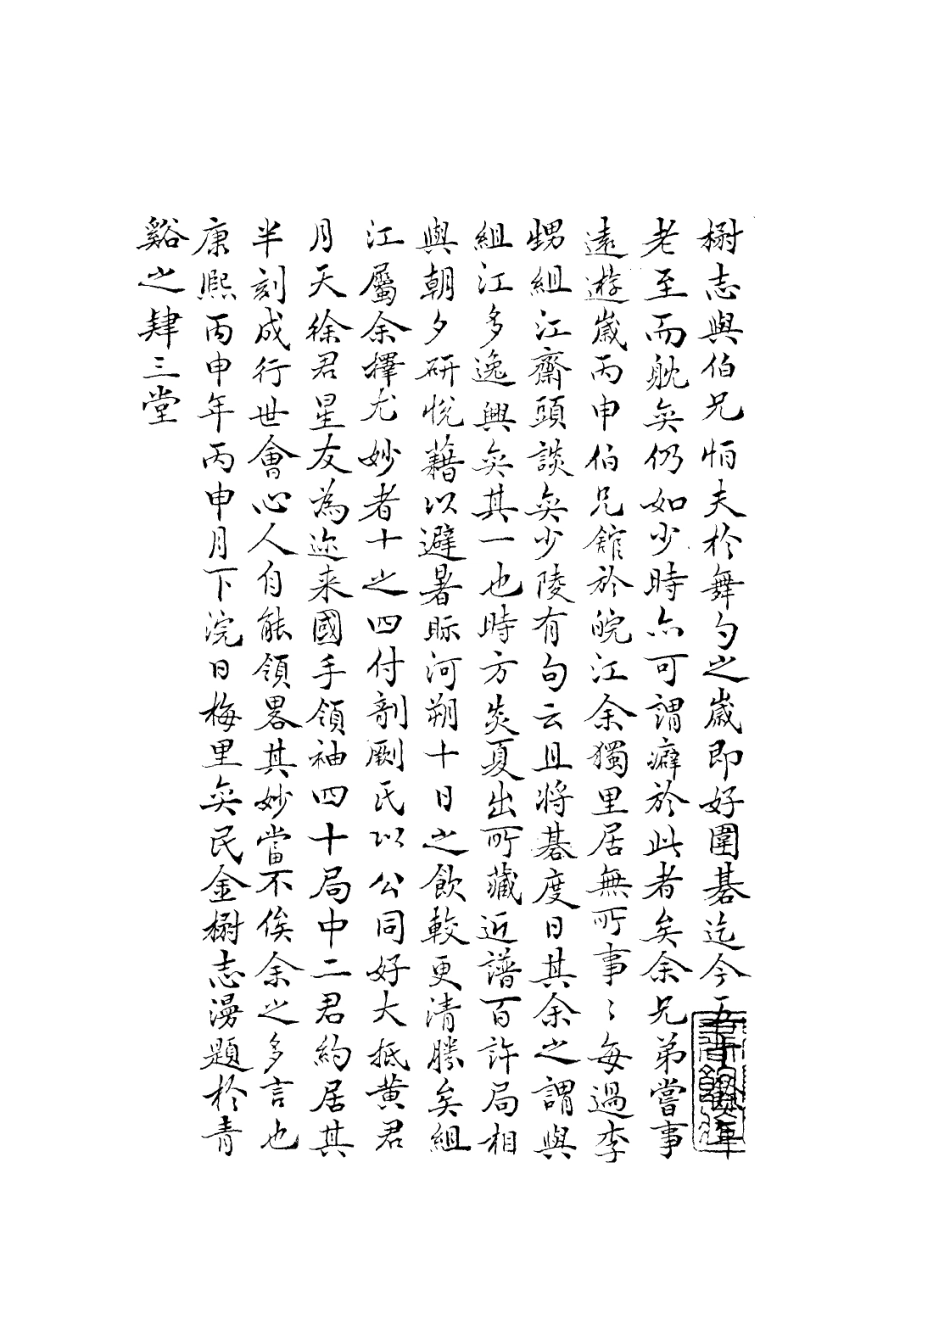 樹志與伯兄怕夫於舞勺之歲即好圍碁迄今五十餘年
老至而躭奕仍如少時亦可謂癖於此者矣余兄弟嘗事
遠遊歲丙申伯兄館於皖江余獨里居無所事〻每過李
甥組江齋頭談奕少陵有句云且將碁度日其余之謂與
組江多逸興奕其一也時方炎夏出所藏近譜百許局相
與朝夕研悅藉以避暑眎河朔十日之飲較更清勝矣組
江屬余擇尤妙者十之四付剞劂氏以公同好大抵黃君
月天徐君星友為近来國手領袖四十局中二君約居其
半刻成行世會心人自能領畧其妙當不俟余之多言也
康熙丙申年丙申月下浣日梅里奕民金樹志漫題於青
谿之肆三堂